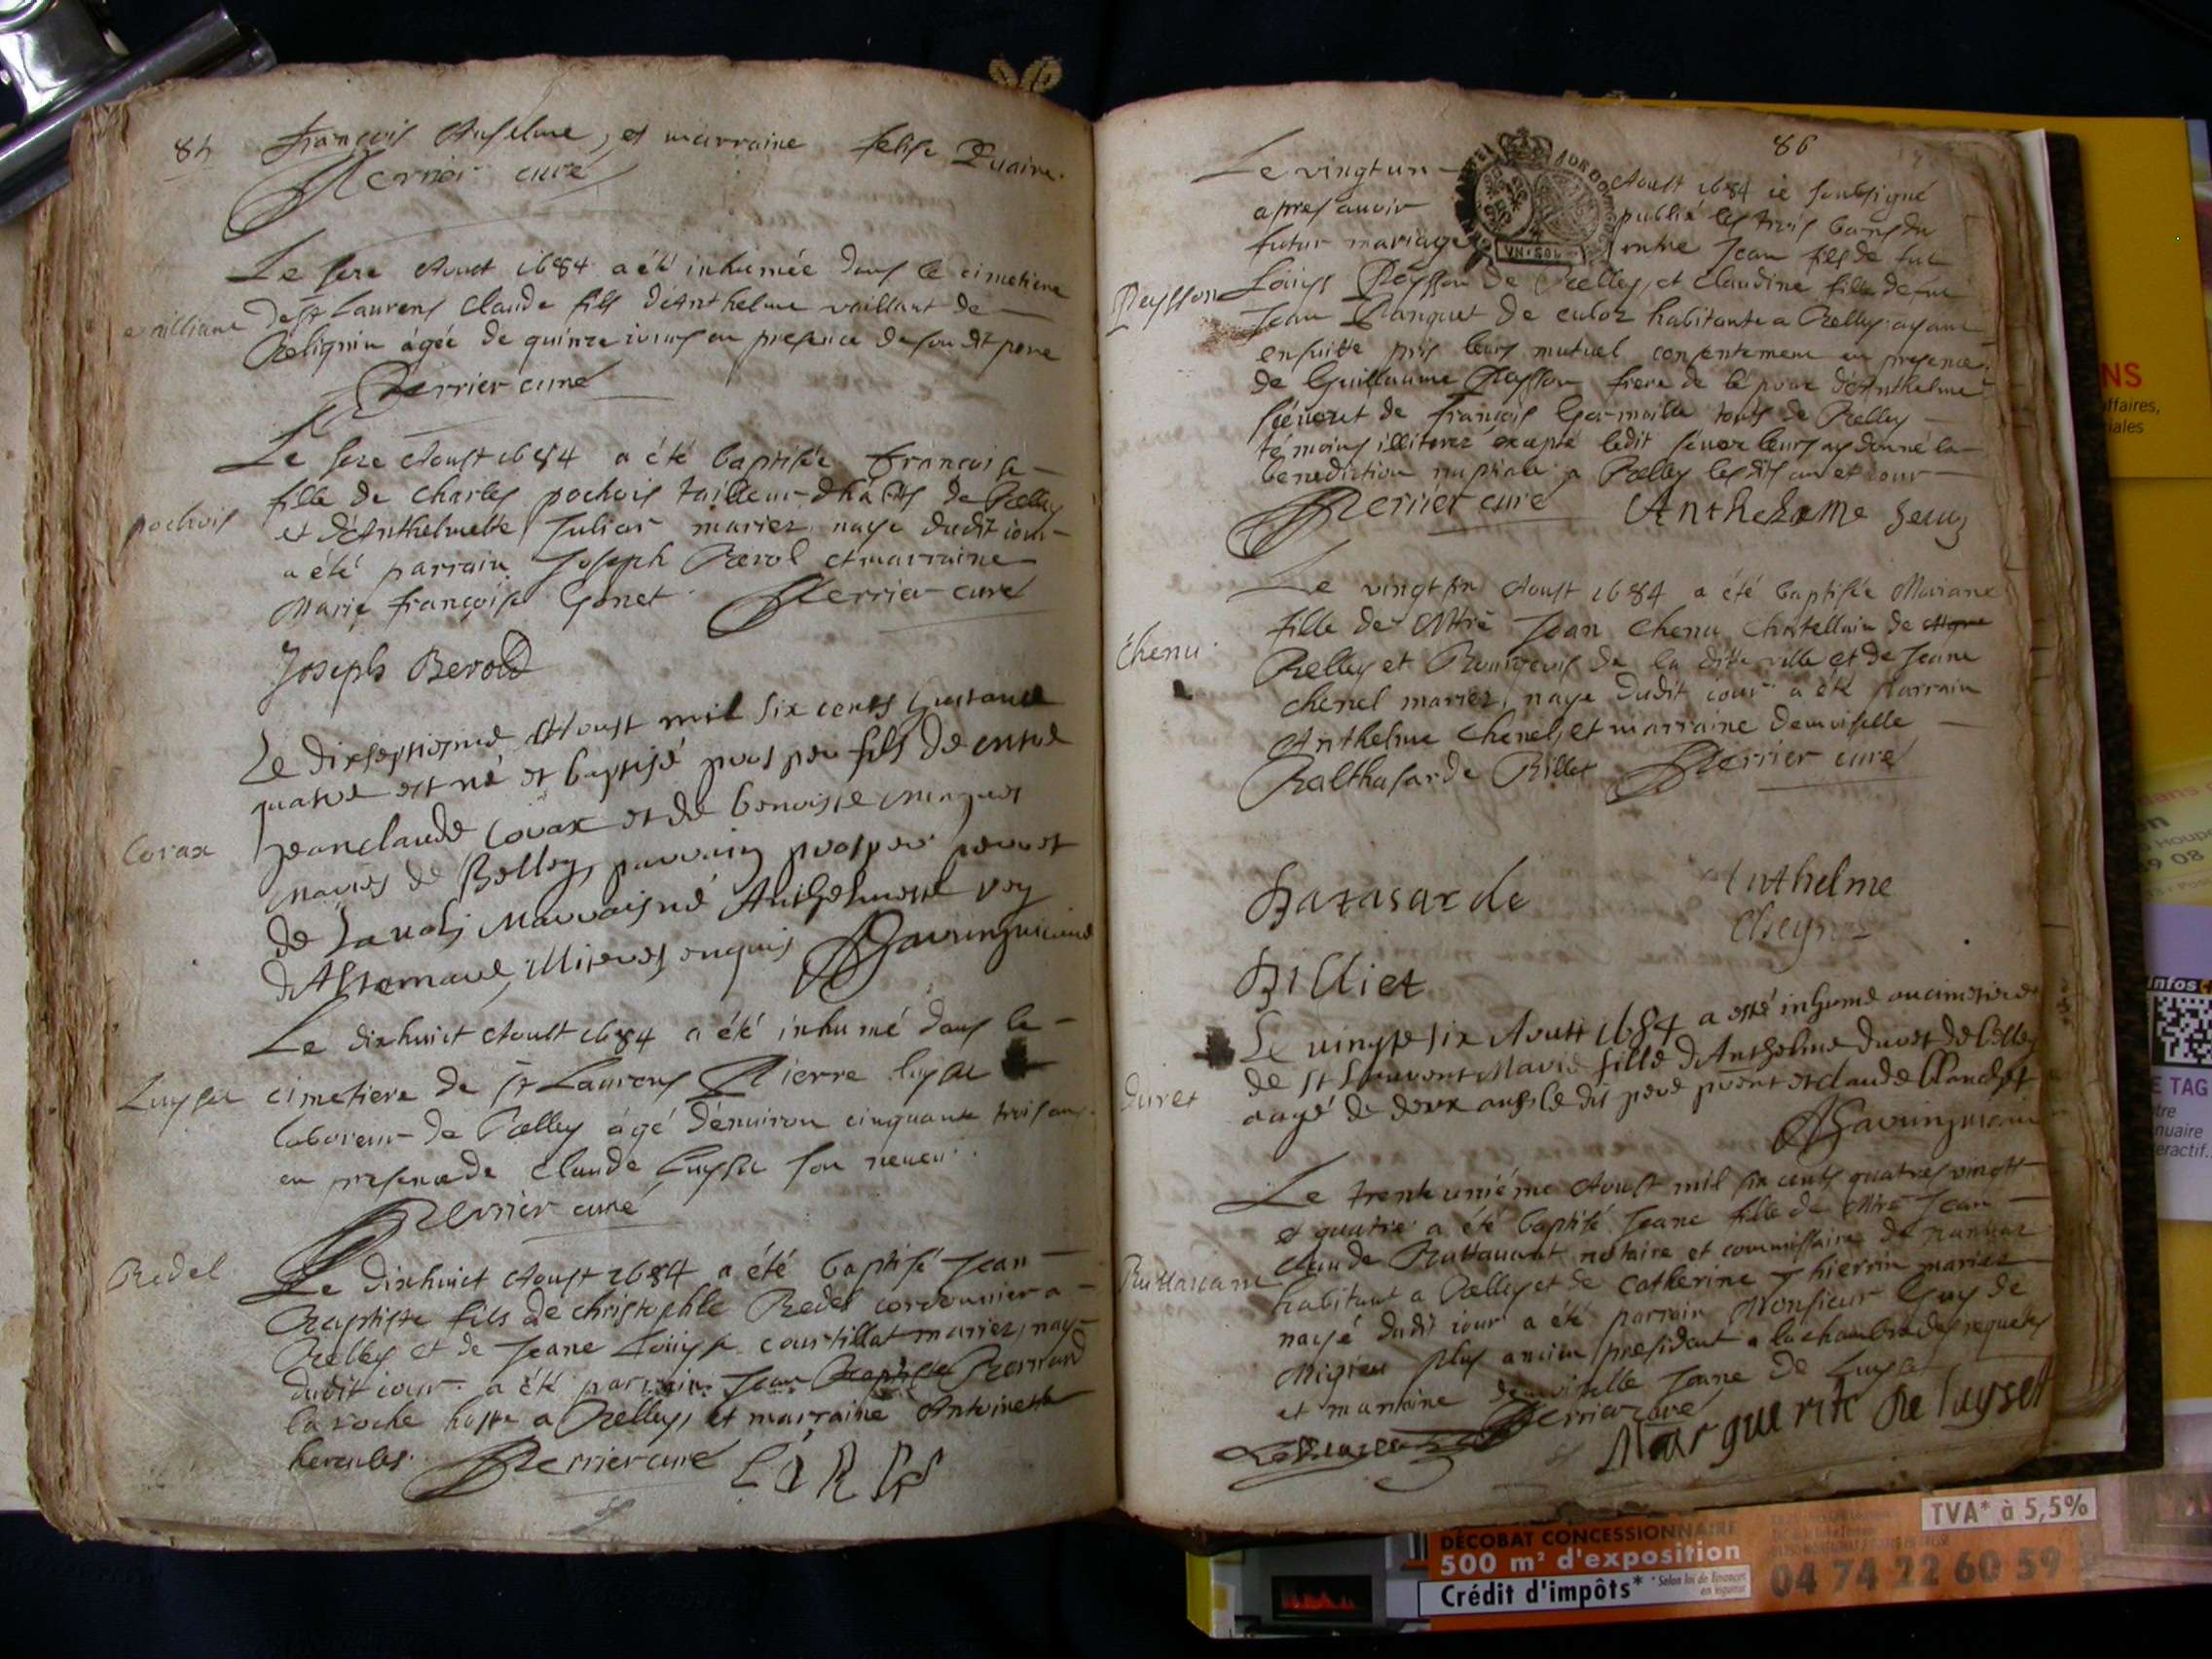 84
françois Anselme, et marraine
Perrier curé
Le Aoust 1684 a été inhumée dans le cimetiere
de St Laurens Claude fils d'Anthelme vaillant de
âgée de quinze jours en presence de son dit pere
Perrier curé
Le Aoust 1684 a été baptisée francoise
pochois
fille de Charles pochois tailleur d'habits de Belley
et d'Anthelmette Julier mariez, naye dudit jour
a été parrain Joseph Berol et marraine
Marie françoise Gonet Perrier curé
Joseph Berold
Le dixseptieme Aoust mil six cents huictante
quatre est né et baptisé prosper fils de
Jeanclaude Corax et de benoiste
Corax
mariés de Belley, parrain prosper
de Marraine Anthelmette
Le dixhuict Aoust 1684 a été inhumé dans le
Luyset
cimetiere de St Laurens Pierre luyset
laboreur de Belley âgé d'environ cinquante trois ans
en presence de Claude Luyset son neveu
Perrier curé
Bedel
Le dixhuict Aoust 1684 a été baptisé Jean
Baptiste fils de christophle Bedel cordonnier a
Belley et de Jeane Louyse courtillat mariez, nay
dudit jour a été parrain Jean Baptiste Bernard
la roche hoste a Belley, et marraine Antoinette
hercules. Perrier curé
86
Le vingt un Aoust 1684 ie soubsigné
apres auoir publié les trois bans du
futur mariage entre Jean fils de feu
VN·SOL
Peysson
Louys Peysson de Belley, et Claudine fille de feu
Jean Banquet de culoz habitante a Belley ayant
ensuitte pris leurs mutuel consentement en presence
de Guillaume Peysson frere de l'époux d'Anthelme
de françois touts de Belley
témoins illiterez excepté ledit leurs ay donné la
benediction nuptiale a Belley lesdits an et jour
Perrier curé Anthelme
Le vingt six Aoust 1684 a été baptisée Mariane
fille de Mtre Jean Chenu Chastellain de
Chenu
Belley et Bourgeois de la ditte ville et de Jeane
chenel mariez, naye dudit jour a été parrain
Anthelme Chenel, et marraine demoiselle
Balthasarde Billet Perrier curé
Bazasarde
Anthelme
Billiet
Le vingte six Aoust 1684 a esté inhumé au cimetiere
de St Laurent Marie fille d'Anthelme duret de belley
duret
aagé de deux ans, le dit pere pnt et claude Blanchet
Le trente unième Aoust mil six cents quatres vingtt
et quatre a été baptisé Jeane fille de Mtre Jean
claude notaire et commissaire de
habitant a Belley et de Catherine Thierrin mariez
nayé dudit jour a été parrain Monsieur Guy de
Migieu plus ancien president a la chambre des requetes
et marraine demoiselle Jeane de Luyset
Perrier curé
Marguerite De luyset
NS
ffaires,
iales
39 08
infos
E TAG
tre
nuaire
eractif.
TVA* à 5,5%
DÉCOBAT CONCESSIONNAIRE
500 m² d'exposition
Crédit d'impôts* * Selon loi de finances
en vigueur
04 74 22 60 59